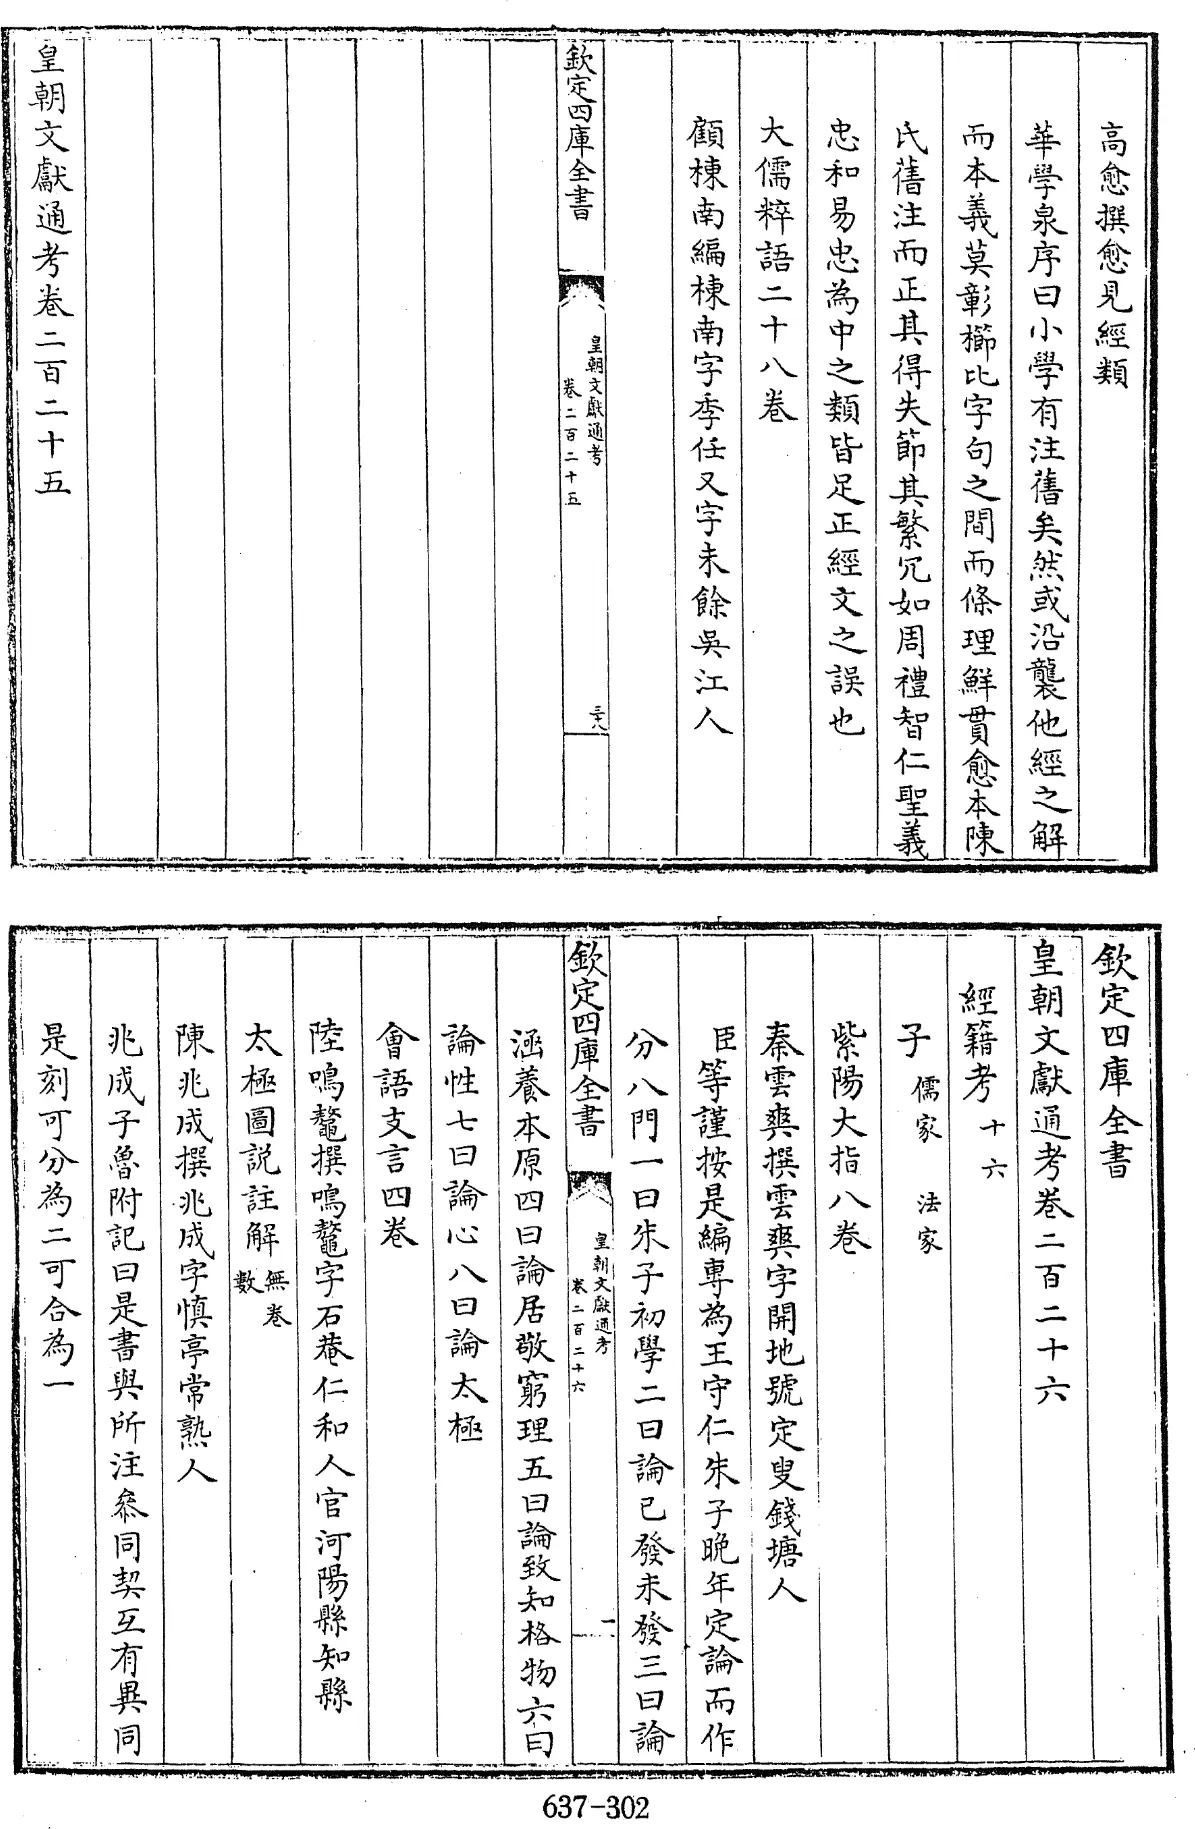 高愈撰愈見經類
華學泉序曰小學有注舊矣然或沿襲他經之解
而本義莫彰櫛比字句之間而條理鮮貫愈本陳
氏舊注而正其得失節其繁冗如周禮智仁聖義
忠和易忠為中之類皆足正經文之誤也
大儒粹語二十八卷
顧棟南編棟南字季任又字未餘吳江人
欽定四庫全書
皇朝文獻通考
卷二百二十五
三十八
皇朝文獻通考卷二百二十五
欽定四庫全書
皇朝文獻通考卷二百二十六
經籍考十六
子 儒家 法家
紫陽大指八卷
秦雲爽撰雲爽字開地號定叟錢塘人
臣等謹按是編專為王守仁朱子晚年定論而作
分八門一曰朱子初學二曰論已發未發三曰論
欽定四庫全書
皇朝文獻通考
卷二百二十六
一
涵養本原四曰論居敬窮理五曰論致知格物六曰
論性七曰論心八曰論太極
會語支言四卷
陸鳴鼇撰鳴鼇字石菴仁和人官河陽縣知縣
太極圖說註解無卷數
陳兆成撰兆成字慎亭常熟人
兆成子魯附記曰是書與所注叅同契互有異同
是刻可分為二可合為一
637-302